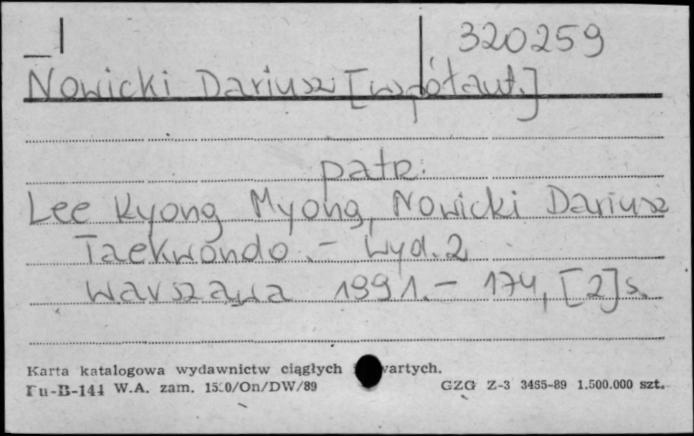 320259
Nowicki Dariusz [współaut.]
patr.
Lee Kyong Myong, Nowicki Dariusz
Taekwondo. - Wyd. 2
Warszawa 1991. - 174, [2] s.
Karta katalogowa wydawnictw ciągłych
Pu-B-144 W.A. zam. /On/DW/89 GZG Z-3 3485-89 1.500.000 szt.